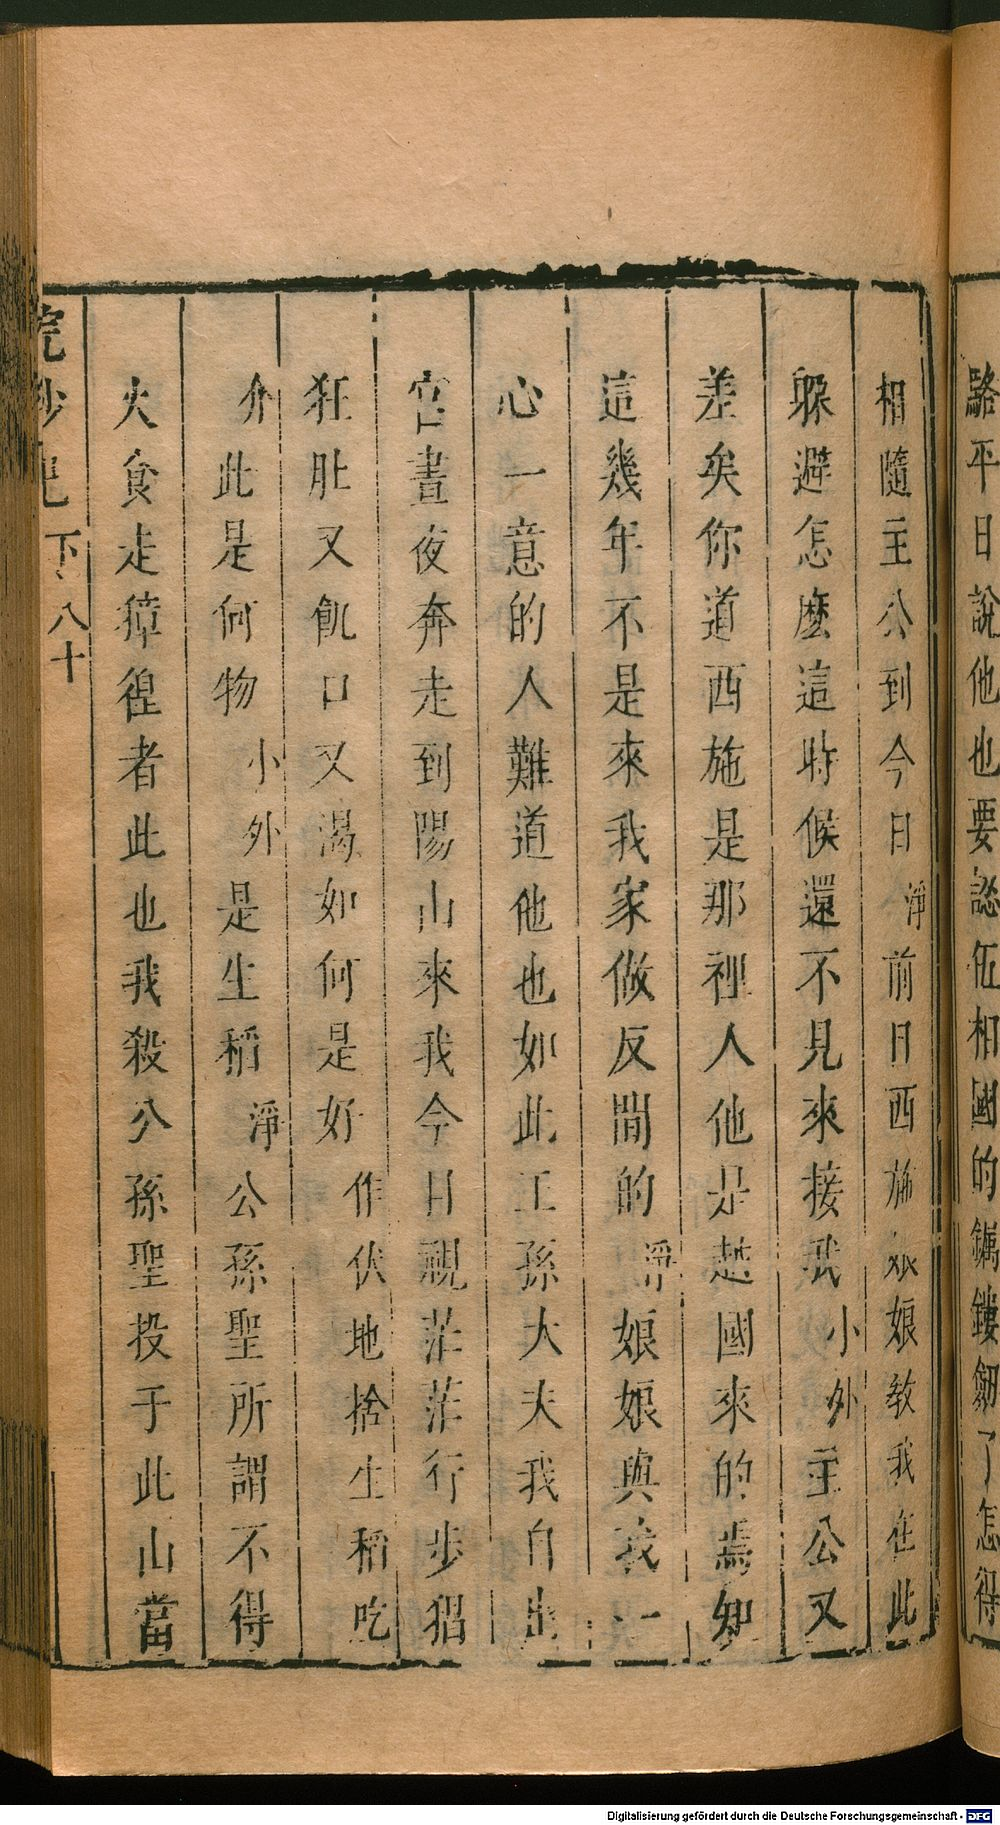 駱平日說他也要認伍相國的鐲鏤劒了怎得
相隨主公到今日淨前日西施娘娘教我在此
躱避怎麼這時候還不見來接我小外主公又
差矣你道西施是那裡人他是越國來的焉知
這幾年不是來我家做反間的淨娘娘與我一
心一意的人難道他也如此王孫大夫我自出
宮晝夜奔走到陽山來我今日視茫茫行步猖
狂肚又飢口又渴如何是好作伏地捨生稻吃
介此是何物小外是生稻淨公孫聖所謂不得
火食走獐徨者此也我殺公孫聖投于此山當
浣紗記 下 八十
Digitalisierung gefördert durch die Deutsche Forschungsgemeinschaft - DFG